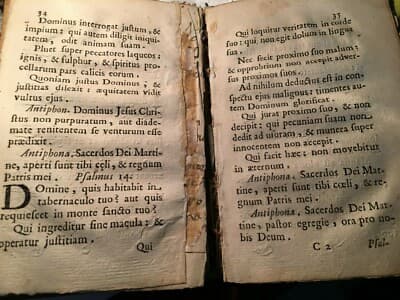 34
Dominus interrogat justum, &
impium: qui autem diligit iniqui-
tatem, odit animam suam.
Pluet super peccatores laqueos:
ignis, & sulphur, & spiritus pro-
cellarum pars calicis eorum.
Quoniam justus Dominus, &
justitias dilexit: æquitatem vidit
vultus ejus.
Antiphon. Dominus Jesus Chri-
stus non purpuratum, aut diade-
mate renitentem se venturum esse
prædixit.
Antiphona. Sacerdos Dei Marti-
ne, aperti sunt tibi cęli, & regnum
Patris mei. Psalmus 14.
Domine, quis habitabit in
tabernaculo tuo? aut quis
requiescet in monte sancto tuo?
Qui ingreditur sine macula: &
operatur justitiam.
Qui
35
Qui loquitur veritatem in corde
suo: qui non egit dolum in lingua
sua.
Nec fecit proximo suo malum:
& opprobrium non accepit adver-
sus proximos suos.
Ad nihilum deductus est in con-
spectu ejus malignus: timentes au-
tem Dominum glorificat.
Qui jurat proximo suo, & non
decipit: qui pecuniam suam non
dedit ad usuram, & munera super
innocentem non accepit.
Qui facit hæc: non movebitur
in æternum.
Antiphona. Sacerdos Dei Mar-
tine, aperti sunt tibi cœli, & re-
gnum Patris mei.
Antiphona. Sacerdos Dei Mar-
tine, pastor egregie, ora pro no-
bis Deum.
C 2 Psal-